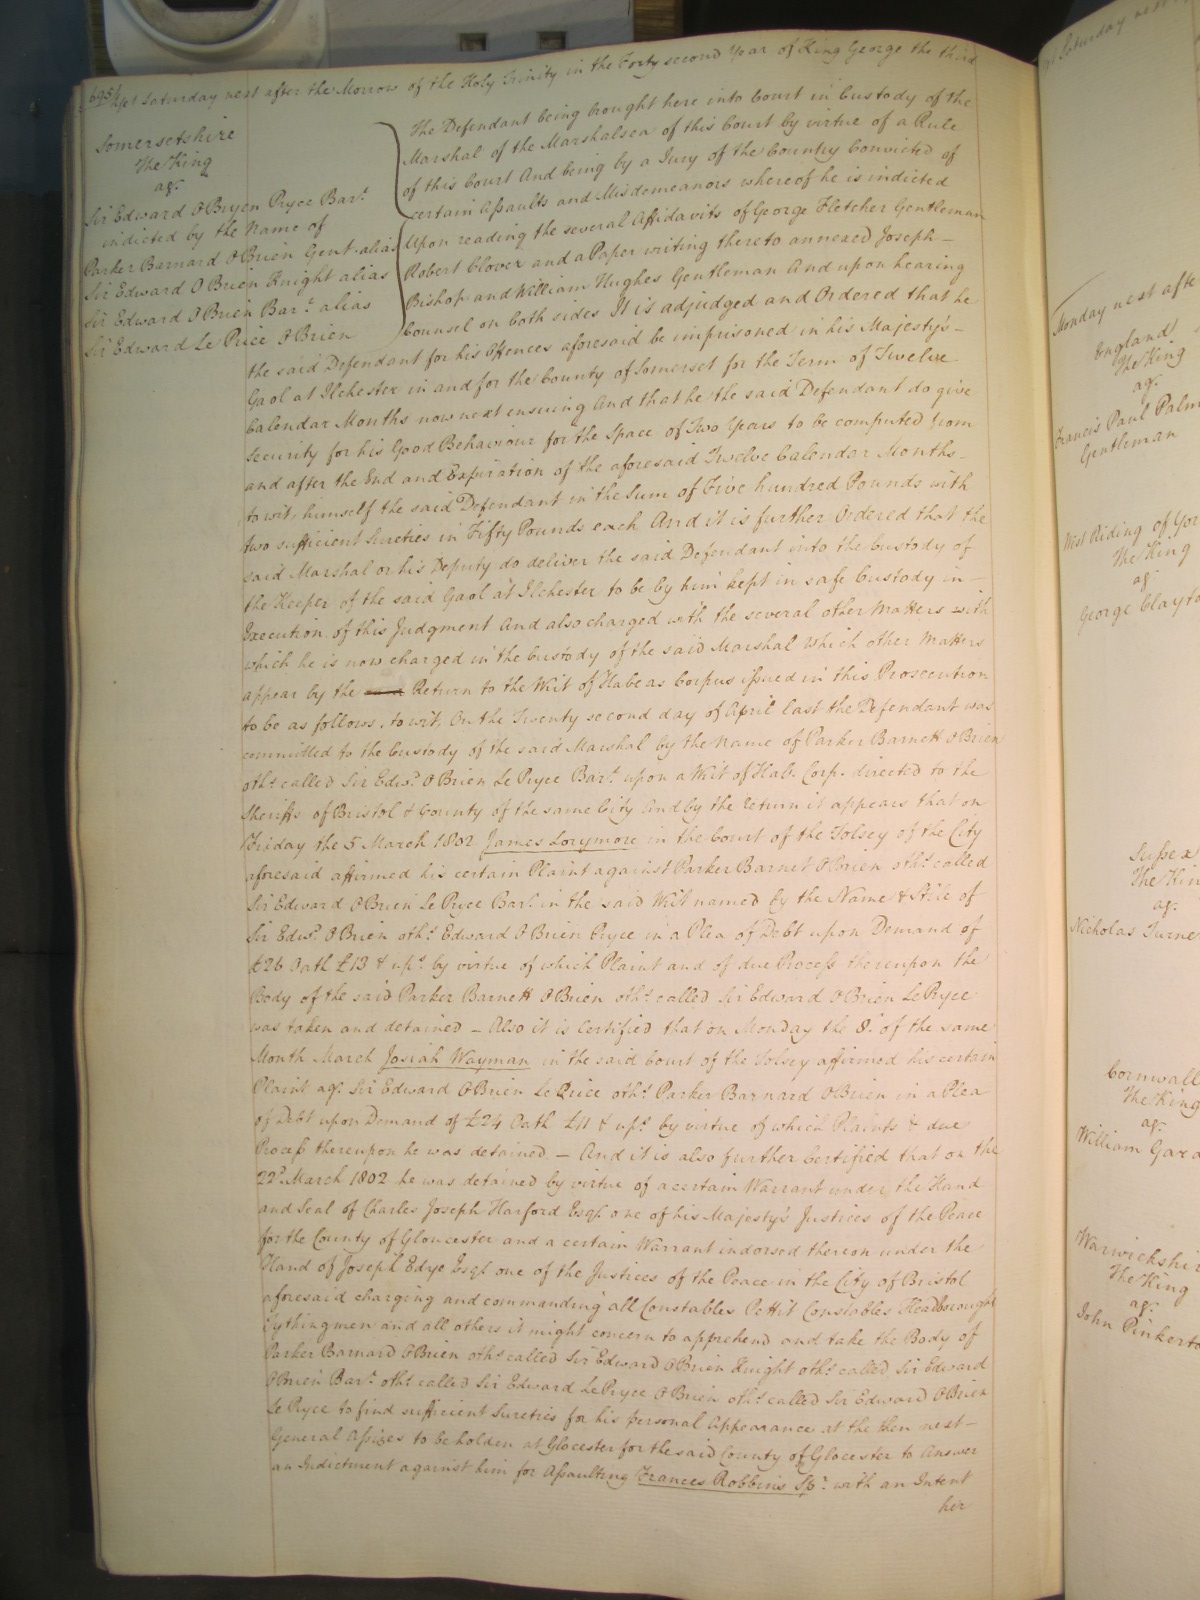 695 Yet Saturday next after the Morrow of the Holy Trinity in the Forty second Year of King George the third
Somersetshire
The King
agt.
Sir Edward O Bryen Pryce Bart.
indicted by the Name of
Parker Barnard O Brien Gent. alias
Sir Edward O Brien Knight alias
Sir Edward O Brien Bart. alias
Sir Edward Le Price O Brien
The Defendant being brought here into Court in Custody of the
Marshal of the Marshalsea of this Court by virtue of a Rule
of this Court And being by a Jury of the Country Convicted of
certain Assaults and Misdemeanors whereof he is indicted
Upon reading the several Affidavits of George Fletcher Gentleman
Robert Clover and a Paper writing thereto annexed Joseph –
Bishop and William Hughes Gentleman And upon hearing
Counsel on both sides It is adjudged and Ordered that he
the said Defendant for his Offences aforesaid be imprisoned in his Majesty's –
Gaol at Ilchester in and for the County of Somerset for the Term of Twelve
Calendar Months now next ensuing And that he the said Defendant do give
Security for his Good Behaviour for the Space of Two Years to be computed from
and after the End and Expiration of the aforesaid Twelve Calendar Months –
to wit, himself the said Defendant in the Sum of Five hundred Pounds with
two sufficient Sureties in Fifty Pounds each And it is further Ordered that the
said Marshal or his Deputy do deliver the said Defendant into the Custody of
the Keeper of the said Gaol at Ilchester to be by him kept in safe Custody in –
Execution of this Judgment And also charged with the several other Matters with
which he is now charged in the Custody of the said Marshal which other Matters
appear by the Return to the Writ of Habeas Corpus issued in this Prosecution
to be as follows, to wit, On the Twenty second day of April last the Defendant was
committed to the Custody of the said Marshal by the Name of Parker Barnett O Brien
othe. called Sir Edwd. O Brien Le Pryce Bart. upon a Writ of Hab. Corp. directed to the
Sheriffs of Bristol & County of the same City And by the return it appears that on
Friday the 5 March 1802 James Lorymore in the Court of the Tolsey of the City
aforesaid affirmed his certain Plaint against Parker Barnet O Brien othe. called
Sir Edward O Brien Le Pryce Bart. in the said Writ named by the Name & Stile of
Sir Edwd. O Brien othe. Edward O Brien Pryce in a Plea of Debt upon Demand of
£26 Oath £13 & upds. by virtue of which Plaint and of due Process thereupon the
Body of the said Parker Barnett O Brien othe. called Sir Edward O Brien Le Pryce
was taken and detained – Also it is Certified that on Monday the 8th. of the same
Month March Josiah Wayman in the said Court of the Tolsey affirmed his certain
Plaint agt. Sir Edward O Brien Le Price othe. Parker Barnard O Brien in a Plea
of Debt upon Demand of £24 Oath £11 & upds. by virtue of which Plaints & due
Process thereupon he was detained – And it is also further Certified that on the
22d. March 1802 he was detained by virtue of a certain Warrant under the Hand
and Seal of Charles Joseph Harford Esqr. one of his Majesty's Justices of the Peace
for the County of Gloucester and a certain Warrant indorsed thereon under the
Hand of Joseph Edye Esqr. one of the Justices of the Peace in the City of Bristol
aforesaid charging and commanding all Constables Pettit Constables Headboroughs
Tythingmen and all others it might concern to apprehend and take the Body of
Parker Barnard O Brien othe. called Sir Edward O Brien Knight othe. called Sir Edward
O Brien Bart. othe. called Sir Edward Le Pryce O Brien othe. called Sir Edward O Brien
Le Pryce to find sufficient Sureties for his personal Appearance at the then next –
General Assizes to be holden at Glocester for the said County of Glocester to Answer
an Indictment against him for Assaulting Frances Robbins Spr. with an Intent
her
Saturday next
Monday next afte
England
The King
agt.
Francis Paul Palm
Gentleman
West Riding of Yor
The King
agt.
George Clayto
Sussex
The Kin
agt.
Nicholas Turne
Cornwall
The King
agt.
William Gard
Warwickshir
The King
agt.
John Pinkerto